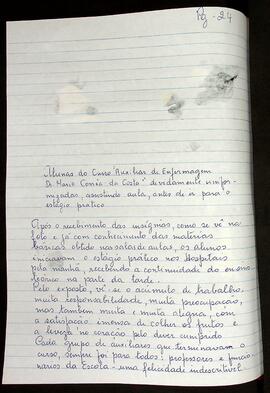 Pg - 24
Alunas do Curso Auxiliar de Enfermagem
Dr. Mario Corrêa da Costa" devidamente unifor-
mizadas, assistindo aula, antes de ir para o
estágio prático
Após o recebimento das insígnias, como se vê na
foto e já com conhecimento das matérias
básicas obtido nas salas de aulas, os alunos
iniciavam o estágio prático nos Hospitais
pela manhã, recebendo a continuidade do ensino
teórico na parte da tarde.
Pelo exposto, vê-se o acúmulo de trabalho,
muita responsabilidade, muita preocupação,
mas também muita e muita alegria, com
a satisfação imensa de colher os frutos e
a leveza no coração pelo dever cumprido
Cada grupo de auxiliares que terminavam o
curso, sempre foi para todos: professores e funcio
nários da Escola - uma felicidade indescritível